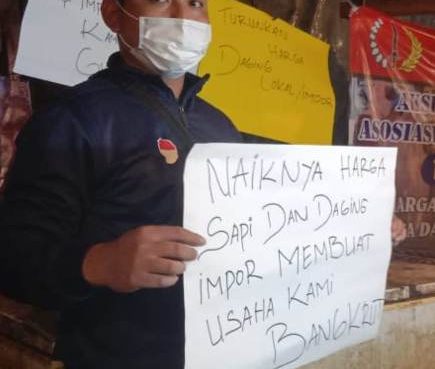 IMP
KAM
G
TURUNKAN
HARGA
DAGING
LOKAL/IMPOR
AKSI
ASOSIAS
ARGA
NAIKNYA HARGA
SAPI DAN DAGING
IMPOR MEMBUAT
USAHA KAMI
BANGKRUT